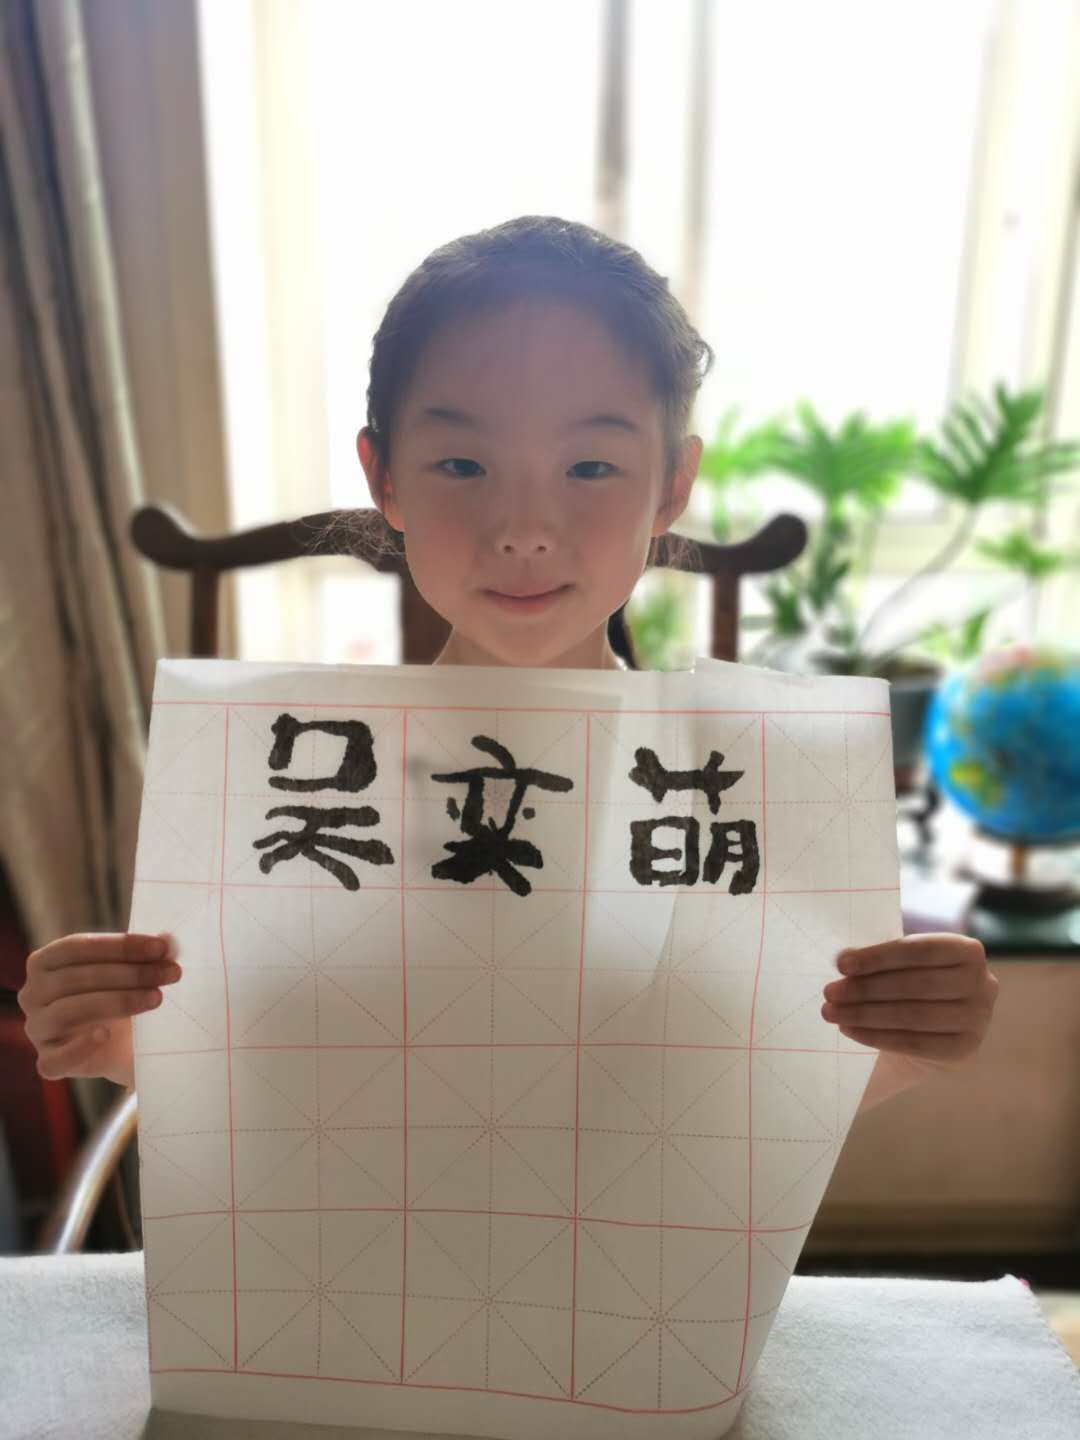 吴奕萌